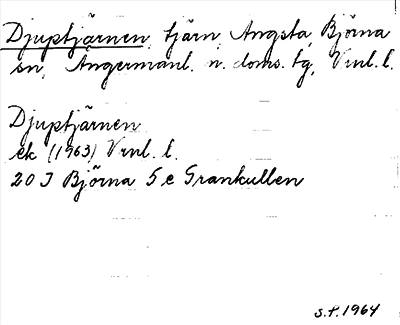 Djuptjärnen, tjärn, Ångsta, Björna
sn, Ångermanl. n. doms. tg, Vnl. l.
Djuptjärnen
ek (1963) Vnl. l.
20 J Björna 5 e Grankullen
S.P. 1964